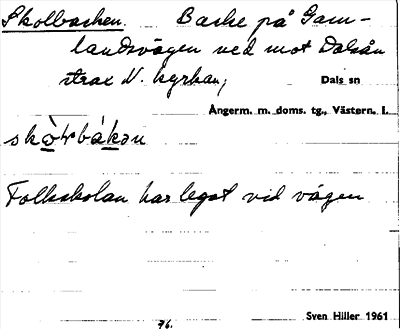 Skolbacken. Backe på Gam-
landsvägen ned mot Dalsån
strax N. kyrkan;
Dals sn
Ångerm. m. doms. tg., Västern. l.
Folkskolan har legat vid vägen
Sven Hiller 1961
76.